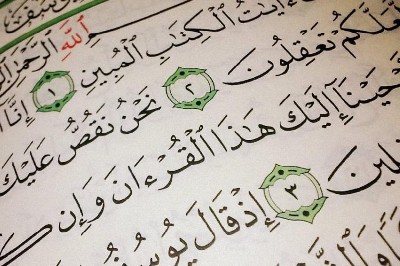 ٱللَّهِ ٱلرَّحْمَٰنِ
ءَايَٰتُ ٱلْكِتَٰبِ ٱلْمُبِينِ ١ إِنَّآ
لَّعَلَّكُمْ تَعْقِلُونَ ٢ نَحْنُ نَقُصُّ عَلَيْكَ
حَيْنَآ إِلَيْكَ هَٰذَا ٱلْقُرْءَانَ وَإِن
فِلِينَ ٣ إِذْ قَالَ يُوسُفُ